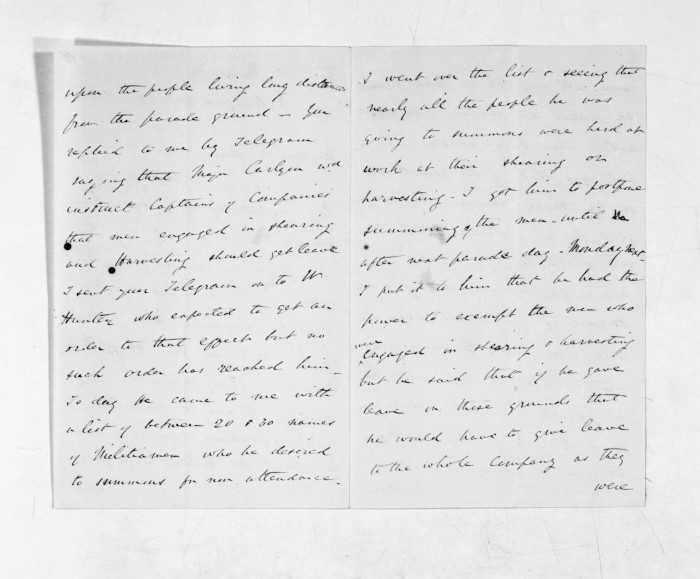 upon the people living long distances
from the parade ground - You
replied to me by Telegram
saying that Major Carlyon wd
instruct Captains of Companies
that men engaged in shearing
and Harvesting should get leave
I sent your Telegram on to Mr
Hunter who expected to get an
order to that effect but no
such order has reached him -
To day He came to me with
a list of between 20 & 30 names
of Militiamen who he desired
to summons for non attendance -
I went over the list & seeing that
nearly all the people he was
going to summons were hard at
work at their shearing or
harvesting - I got him to postpone
summoning the men - until
after next parade day - Monday next -
I put it to him that he had the
power to exempt the men who
were
engaged in shearing & harvesting
but he said that if he gave
leave on these grounds that
he would have to give leave
to the whole Company as they
were